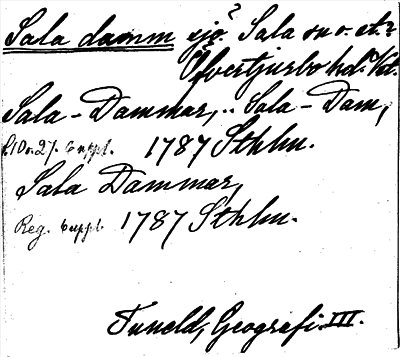 Sala damm sjö? Sala sn o. et.?
Öfvertjurbo hd. Vst.
Sala-Dammar, .. Sala-Dam,
s. 10 o. 27. Suppl. 1787 Sthlm.
Sala Dammar,
Reg. Suppl. 1787 Sthlm.
Tuneld, Geografi III.